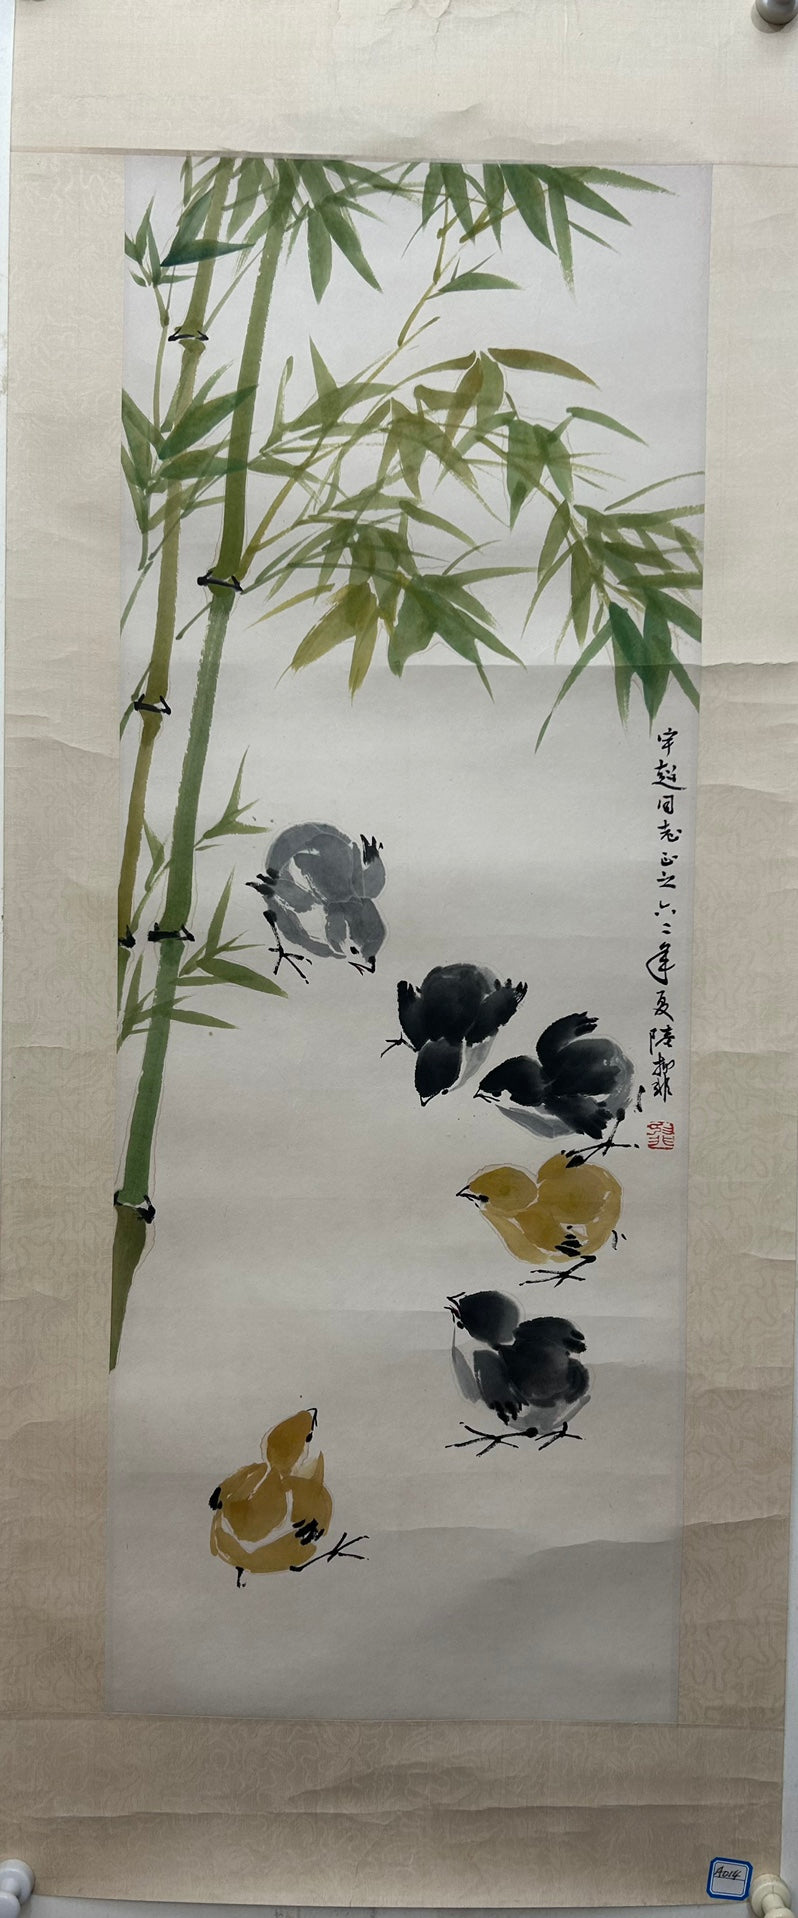 宇超同志正之 六二年夏 陸抑非
A014